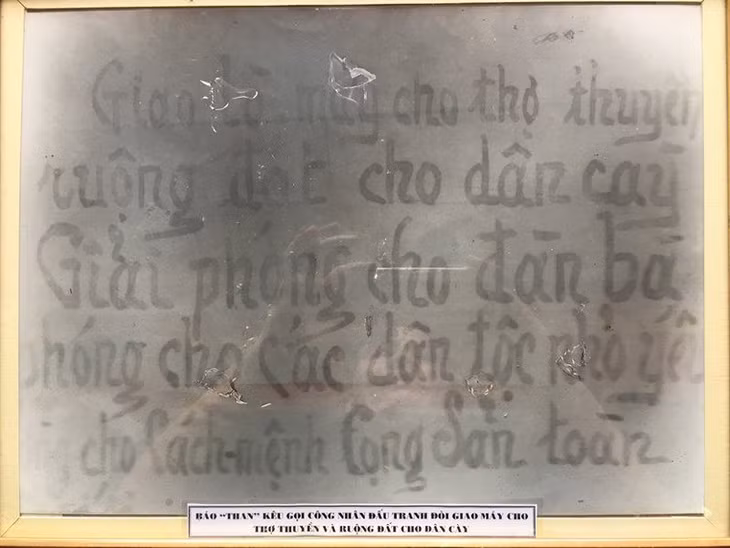 Giao lò máy cho thợ thuyền
ruộng đất cho dân cày
Giải phóng cho đàn bà
phóng cho các dân tộc nhỏ yếu
cho Cách-mệnh Cọng Sản toàn
BÁO "THAN" KÊU GỌI CÔNG NHÂN ĐẤU TRANH ĐÒI GIAO MÁY CHO
THỢ THUYỀN VÀ RUỘNG ĐẤT CHO DÂN CÀY